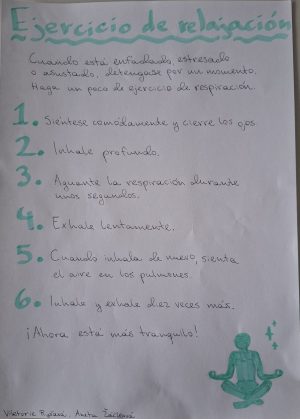 Ejercicio de relajación
Cuando está enfadado, estresado
o asustado, detengase por un momento.
Haga un poco de ejercicio de respiración.
1. Siéntese comódamente y cierre los ojos.
2. Inhale profundo.
3. Aguante la respiración durante
unos segundos.
4. Exhale lentamente.
5. Cuando inhala de nuevo, sienta
el aire en los pulmones.
6. Inhale y exhale diez veces más.
¡Ahora está más tranquilo!
Viktorie